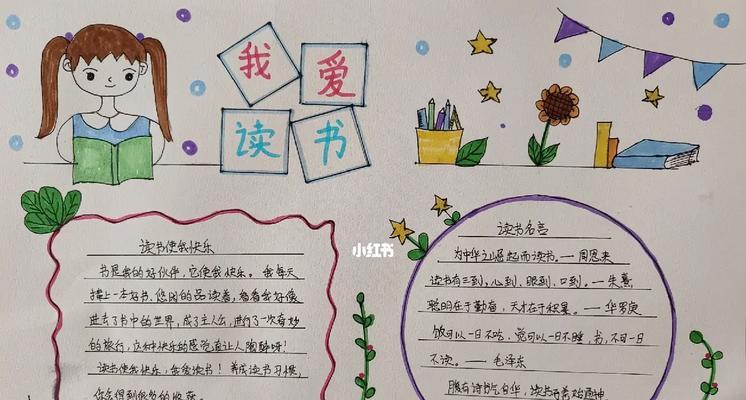 我爱
读书
小红书
读书使我快乐
书是我的好伙伴,它使我快乐。我每天
捧上一本好书,悠闲的品读着,看着我好像
进去了书中的世界,成了主人公,进行了一次奇妙
的旅行,这种快乐的感觉真让人陶醉呀!
读书使我快乐,我爱读书!养成读书习惯,
你会得到很多的收获
读书名言
为中华之崛起而读书。——周恩来
读书有三到,心到、眼到、口到。——朱熹
聪明在于勤奋,天才在于积累。——华罗庚
饭可以一日不吃,觉可以一日不睡,书,不可一日
不读。——毛泽东
腹有诗书气自华,读书